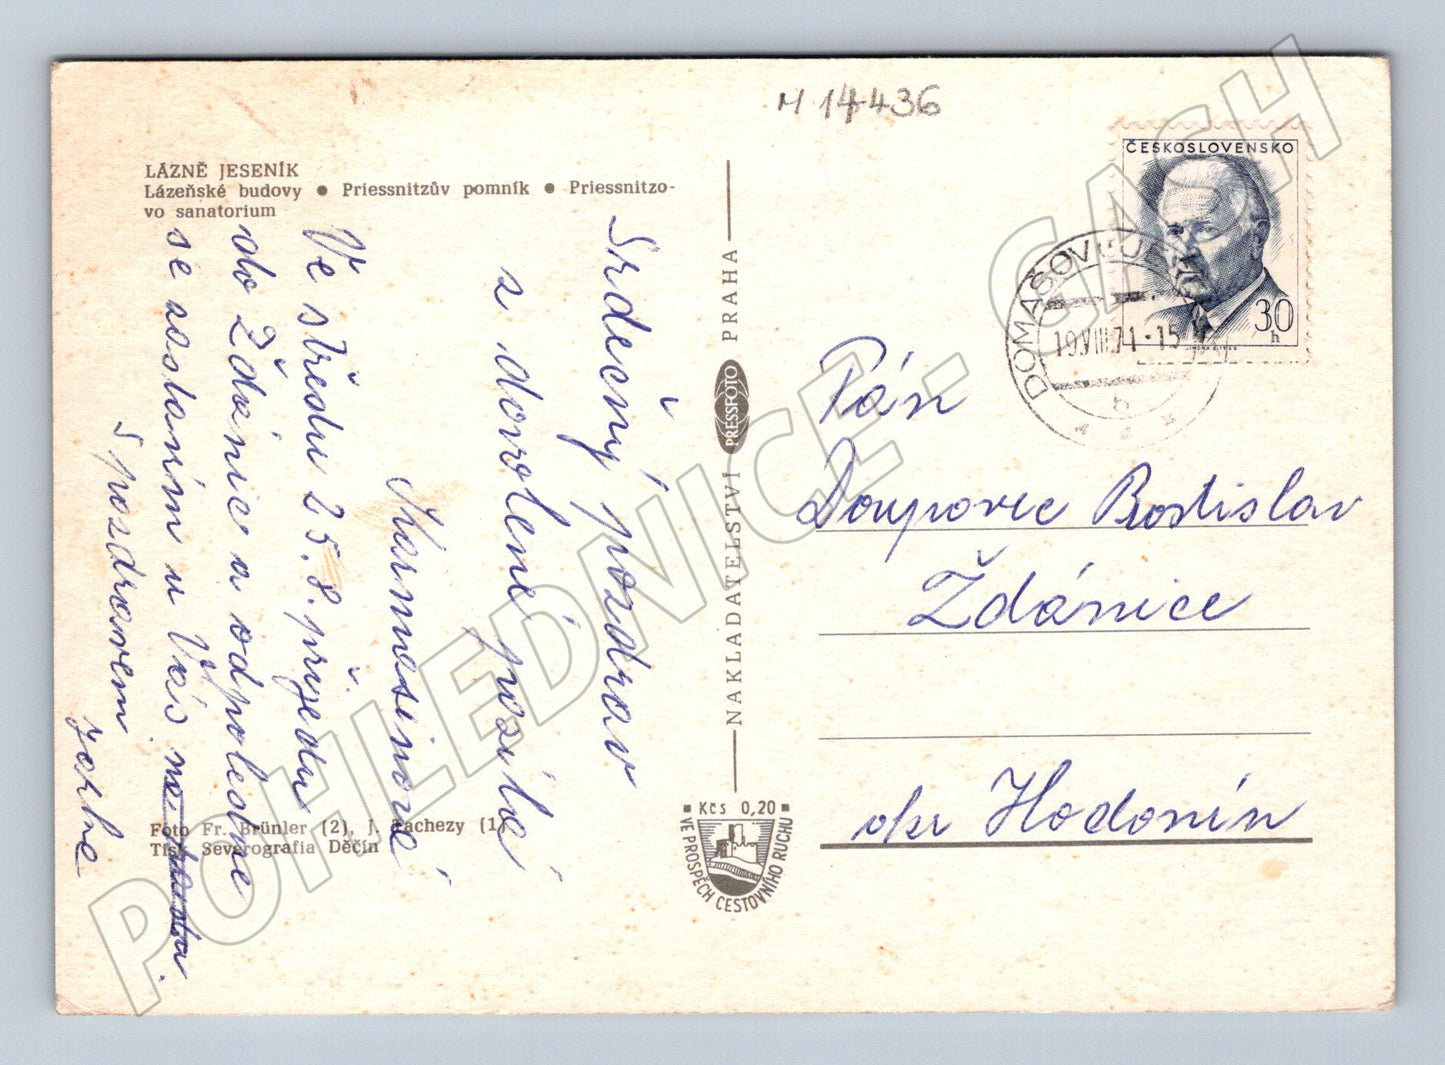 M 14436
LÁZNĚ JESENÍK
Lázeňské budovy ● Priessnitzův pomník ● Priessnitzo-
vo sanatorium
Srdečný pozdrav
z dovolené posílá
Ve středu 25. 8. přijedu
do Ždánic a odpoledne
se zastavím u Vás
S pozdravem
Foto Fr. Brünler (2), J. Rachezy (1)
Tisk Severografia Děčín
NAKLADATELSTVÍ PRESSFOTO PRAHA
Kčs 0,20
VE PROSPĚCH CESTOVNÍHO RUCHU
ČESKOSLOVENSKO
30
h
DOMAŠOV U JES
19.VIII.71-15
b
Pán
Doupovec Rostislav
Ždánice
okr Hodonín
POHLEDNICE - CASH